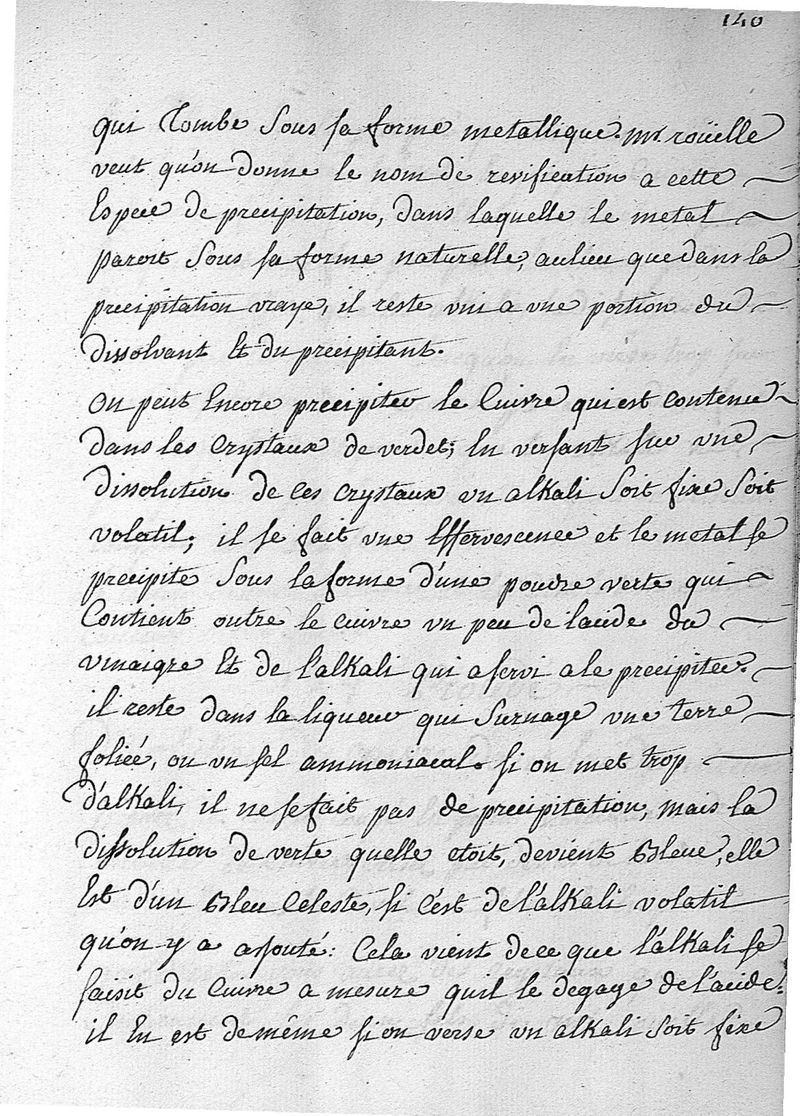 140
qui tombe sous sa forme metallique. mr. roüelle
veut qu'on donne le nom de revification a cette
Espece de precipitation, dans laquelle le metal
paroit sous sa forme naturelle, aulieu que dans la
precipitation vraye, il reste uni a vne portion du
dissolvant Et du precipitant.
On peut Encore precipiter le Cuivre qui est contenu
dans les crystaux de verdet; En versant sur vne
dissolution de ces crystaux vn alkali soit fixe soit
volatil; il se fait vne Effervescence et le metal se
precipite sous la forme d'une poudre verte qui
Contient outre le cuivre vn peu de lacide du
vinaigre Et de l'alkali qui a servi a le precipiter.
il reste dans la liqueur qui surnage vne terre
foliée, ou vn sel ammoniacal. si on met trop
d'alkali, il ne se fait pas de precipitation, mais la
dissolution de verte quelle etoit, devient bleue, elle
Est d'un bleu Celeste, si c'est de l'alkali volatil
qu'on y a ajouté: Cela vient de ce que l'alkali se
saisit du Cuivre a mesure quil le degage de l'acide.
il En est de même si on verse vn alkali soit fixe